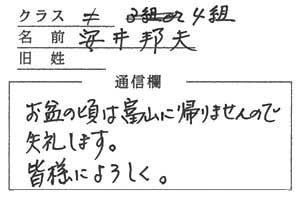 クラス ≠ 3組 4組
名前 安井邦夫
旧姓
通信欄
お盆の頃は富山に帰りませんので
失礼します。
皆様によろしく。